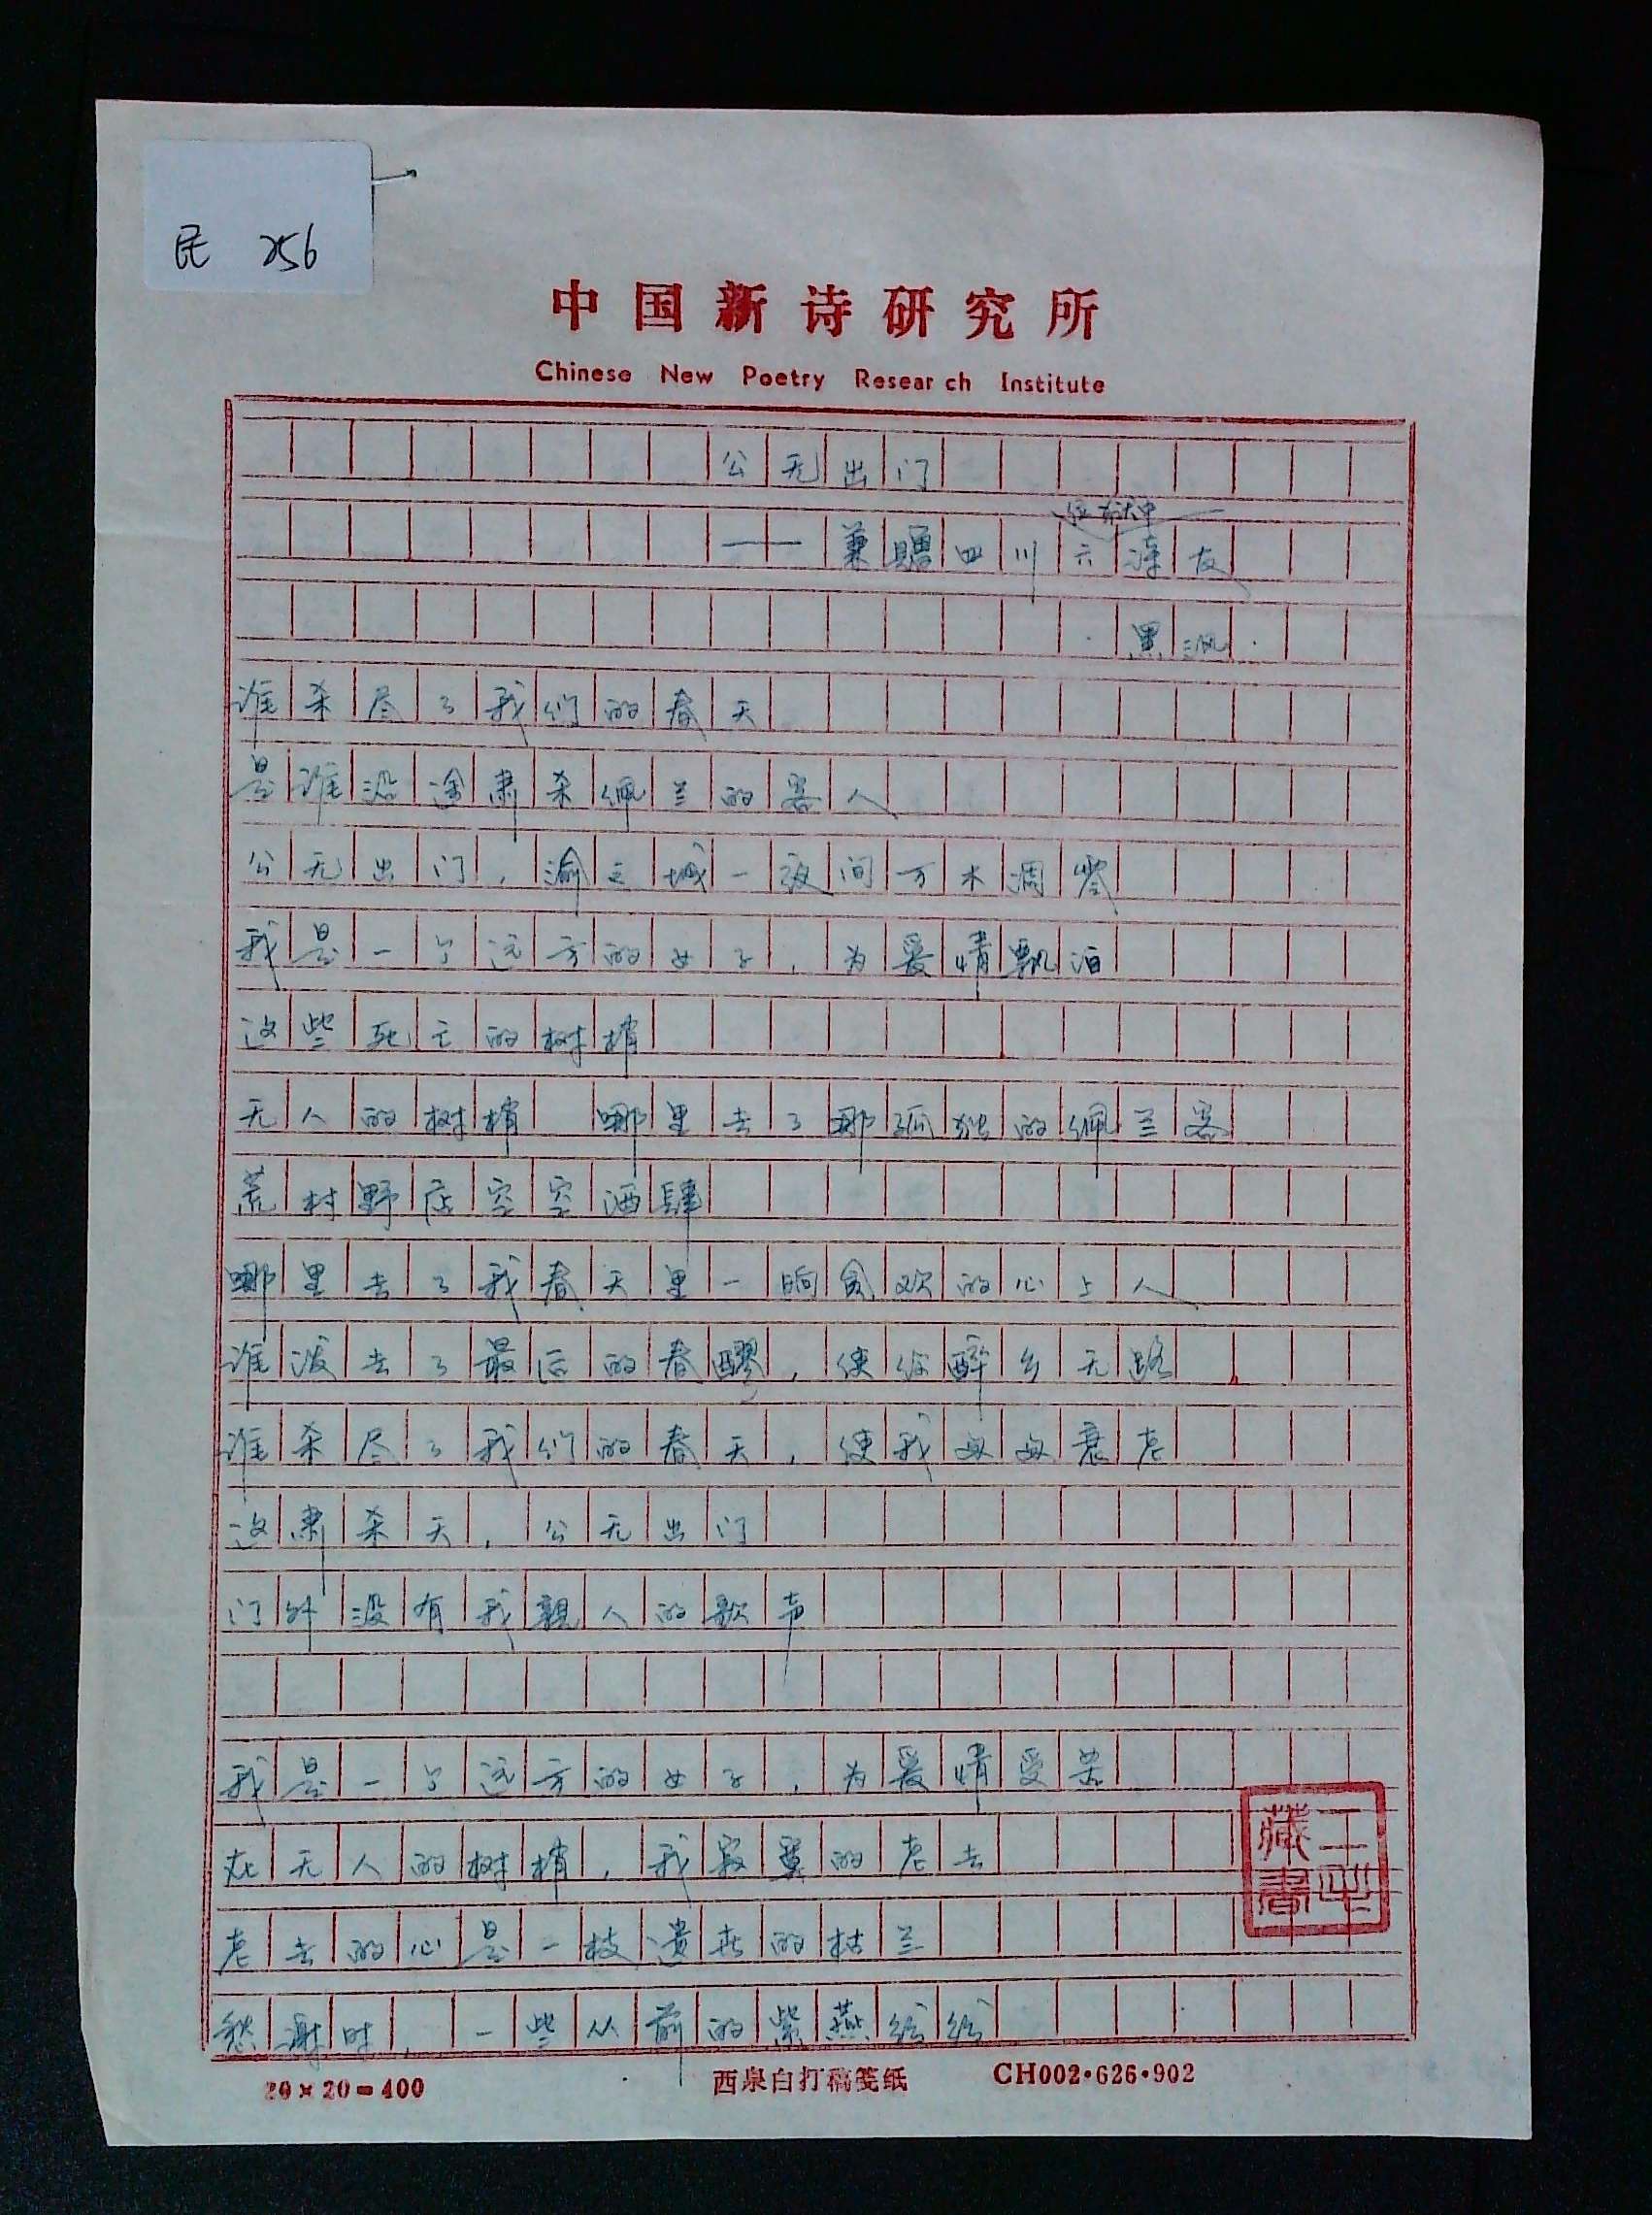 民 256
中国新诗研究所
Chinese New Poetry Research Institute
公无出门
——兼赠四川六诗友
·黑沨·
谁杀尽了我们的春天
是谁沿途肃杀佩兰的客人
公无出门，渝之城一夜间万木凋零
我是一个远方的女子，为爱情飘泊
这些死亡的树梢
无人的树梢 哪里去了那孤独的佩兰客
荒村野店空空酒肆
哪里去了我春天里一晌贪欢的心上人
谁泼去了最后的春醪，使你醉乡无路
谁杀尽了我们的春天，使我每每衰老
这肃杀天，公无出门
门外没有我亲人的歌声
我是一个远方的女子，为爱情受苦
在无人的树梢，我寂寞的老去
老去的心是一枝遗弃的枯兰
愁谢时，一些从前的紫燕纷纷
藏書
20×20=400
西泉白打稿笺纸
CH002·626·902